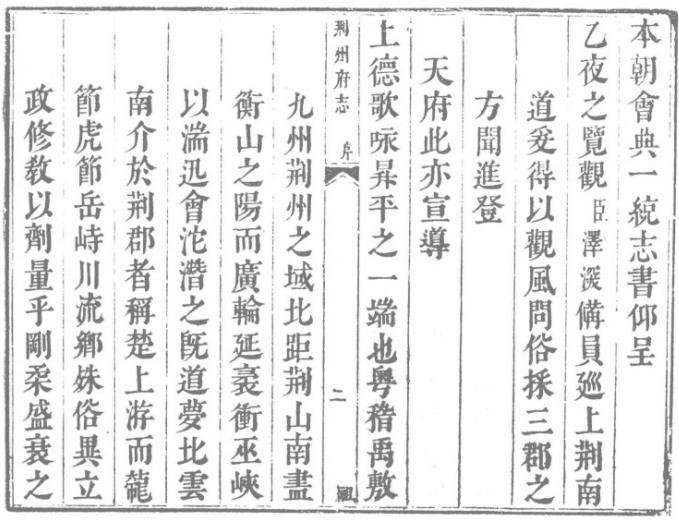 本朝會典一統志書仰呈
乙夜之覽觀臣澤深備員廵上荆南
道爰得以觀風問俗採三郡之
方聞進登
天府此亦宣導
上德歌咏昇平之一端也粤稽禹敷
荆州府志 序 二
九州荆州之域北距荆山南盡
衡山之陽而廣輪延袤衝巫峽
以湍迅會沱潛之旣道夢北雲
南介於荆郡者稱楚上游而龍
節虎節岳峙川流鄉殊俗異立
政修敎以劑量乎剛柔盛衰之